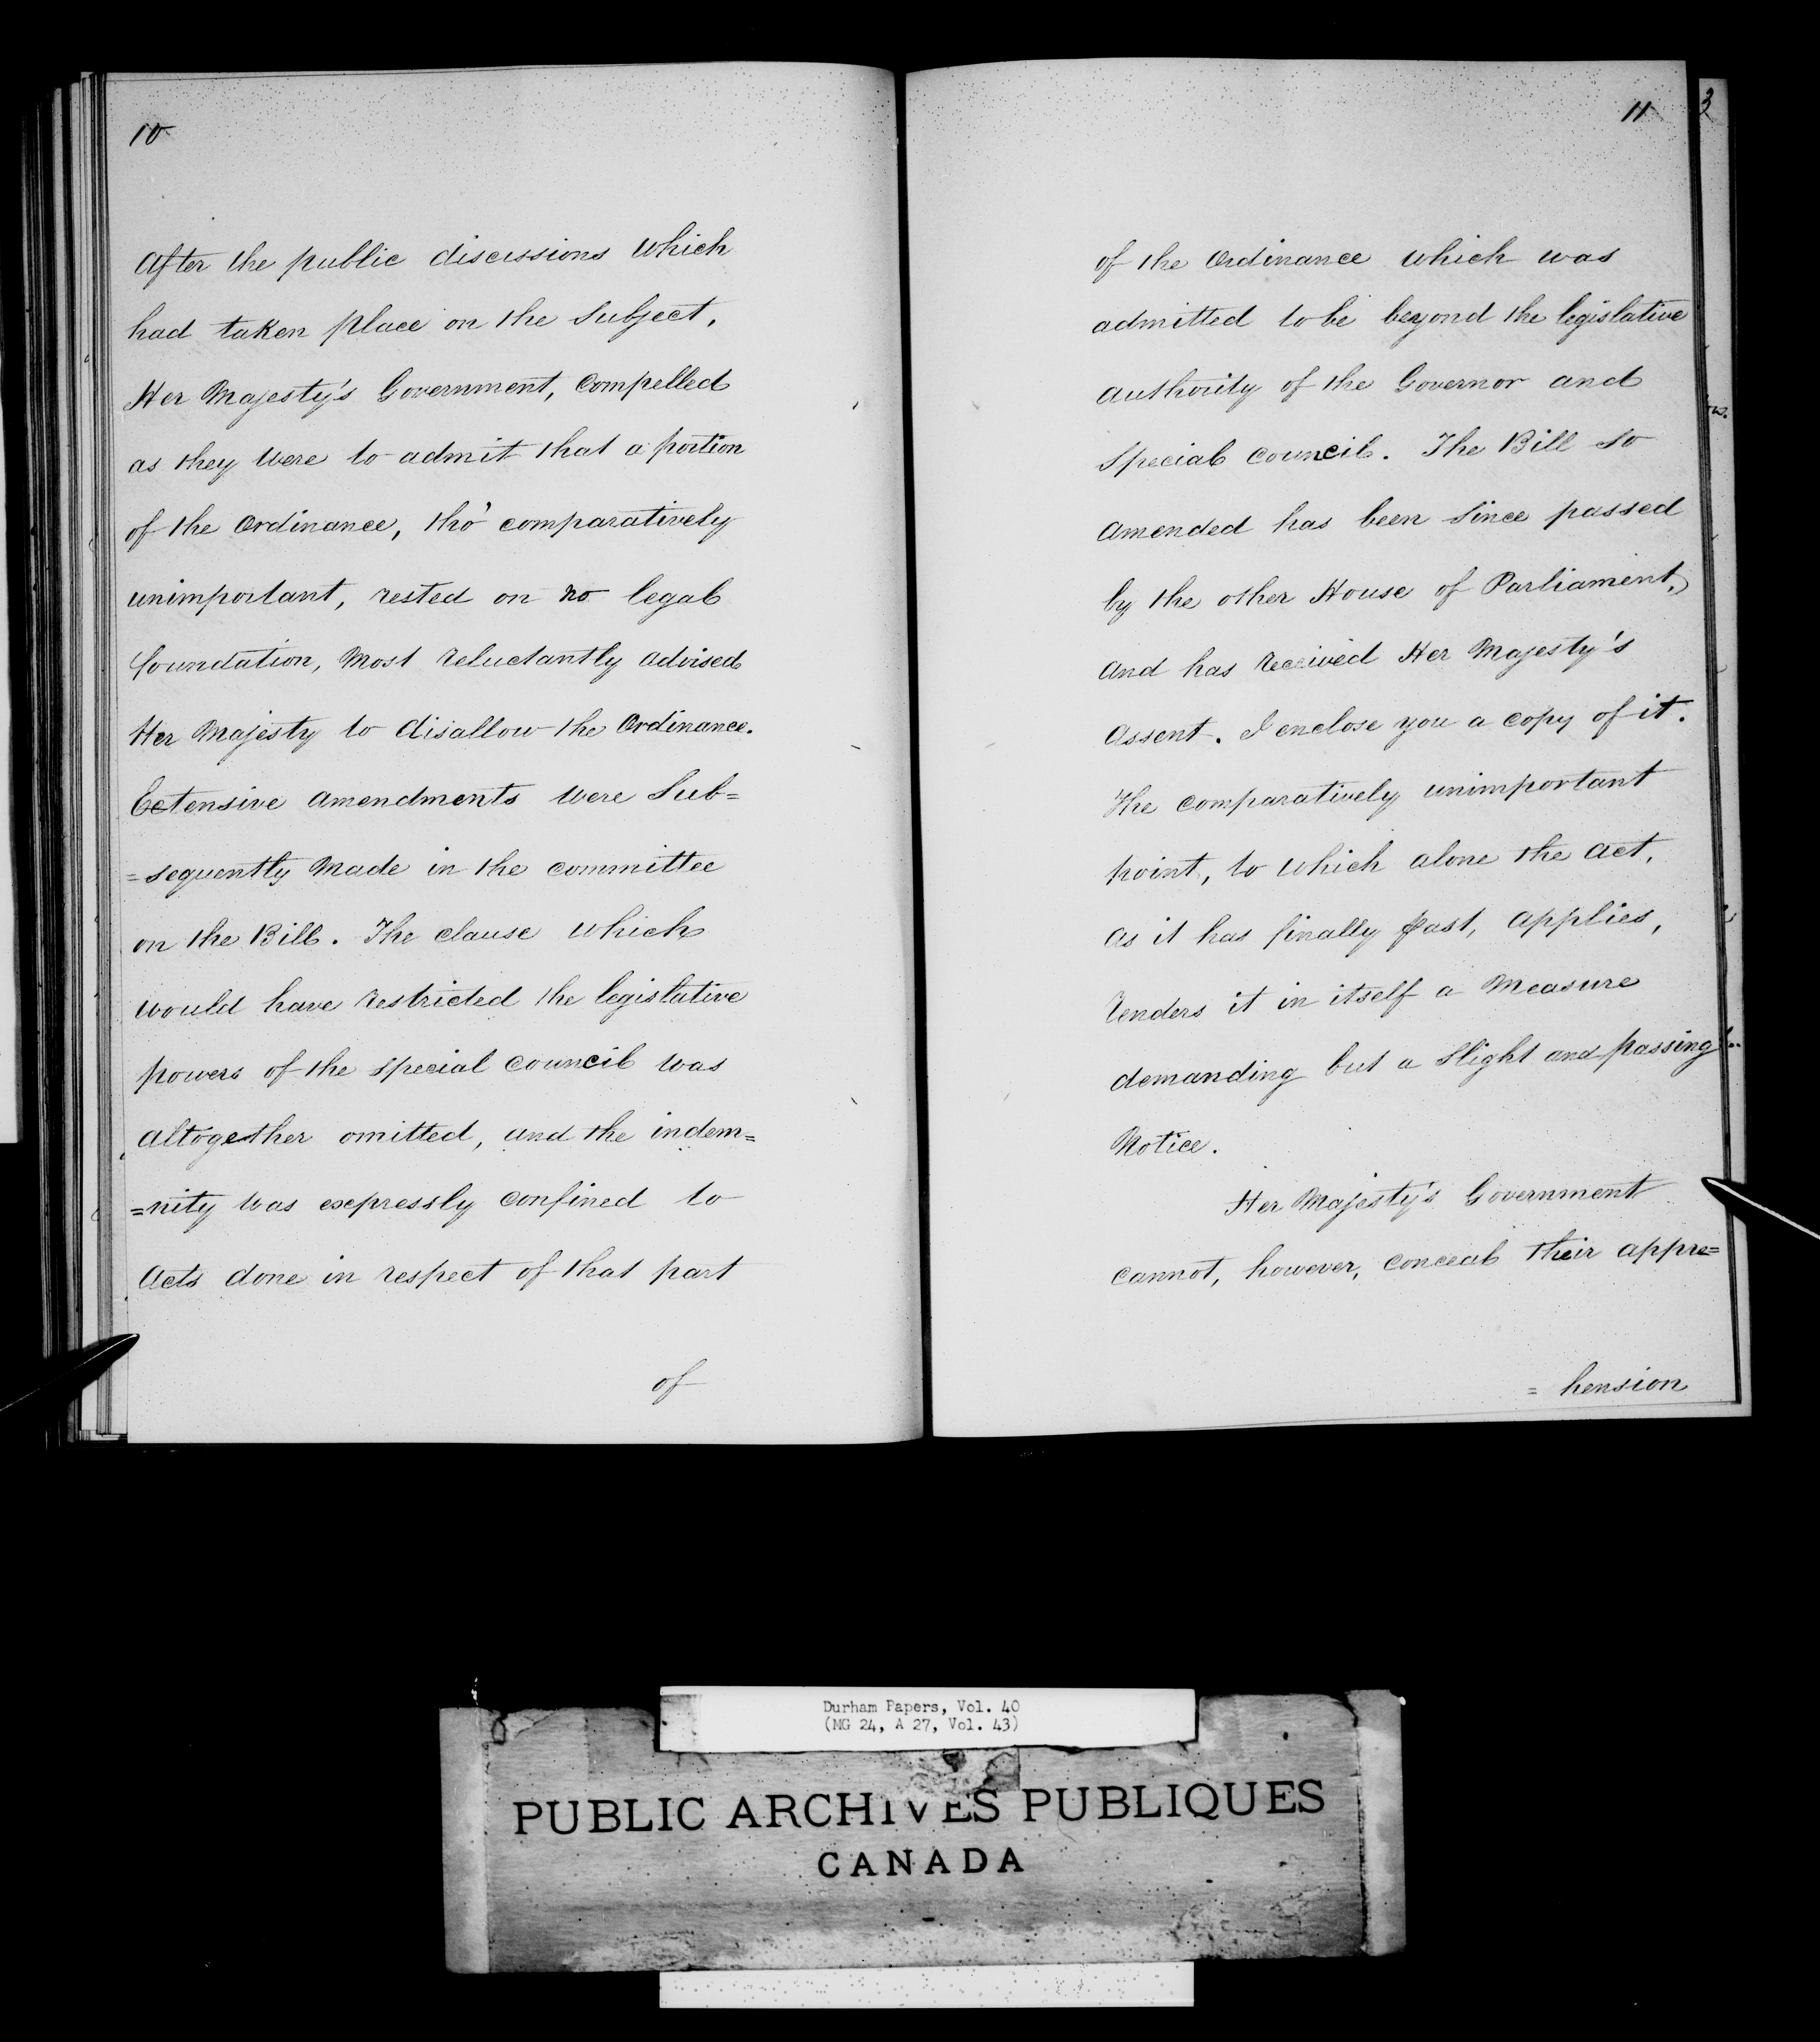 10
After the public discussions which
had taken place on the Subject,
Her Majesty's Government, compelled
as they were to admit that a portion
of the Ordinance, tho' comparatively
unimportant, rested on no legal
foundation, most reluctantly advised
Her Majesty to disallow the Ordinance.
Extensive amendments were Sub=
=sequently made in the committee
on the Bill. The clause which
would have restricted the legislative
powers of the special council was
altogether omitted, and the indem=
=nity was expressly confined to
Acts done in respect of that part
of
11
of the Ordinance which was
admitted to be beyond the legislative
authority of the Governor and
Special council. The Bill so
amended has been since passed
by the other House of Parliament,
and has received Her Majesty's
Assent. I enclose you a copy of it.
The comparatively unimportant
point, to which alone the Act,
as it has finally past, applies,
renders it in itself a Measure
demanding but a slight and passing
Notice.
Her Majesty's Government
cannot, however, conceal their appre=
= hension
3
Durham Papers, Vol. 40
(MG 24, A 27, Vol. 43)
PUBLIC ARCHIVES PUBLIQUES
CANADA